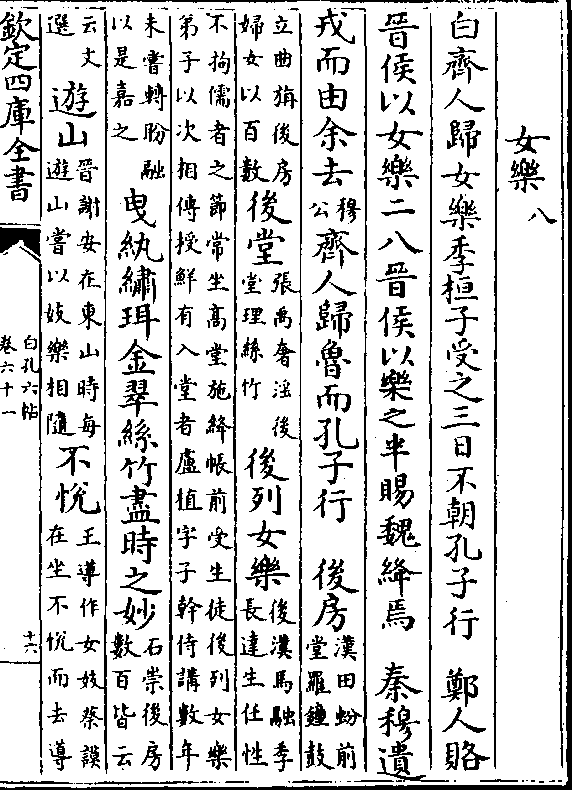 女樂八
白齊人歸女樂季桓子受之三日不朝孔子行　鄭人賂
晉侯以女樂二八晉侯以樂之半賜魏絳焉　秦穆遺
戎而由余去穆公齊人歸魯而孔子行　後房漢田蚡前堂羅鐘鼓
立曲旃後房婦女以百數後堂張禹奢淫後堂理絲竹後列女樂後漢馬融季長達生任性
不拘儒者之節常坐髙堂施絳帳前受生徒後列女樂弟子以次相傳授鮮有入堂者盧植字子幹侍講數年
未嘗轉盼融以是嘉之曳紈繡珥金翠絲竹盡時之妙石崇後房數百皆云
云文選遊山晉謝安在東山時每遊山嘗以妓樂相隨不悅王導作女妓蔡謨在坐不悅而去導
欽定四庫全書
白孔六帖
卷六十一
十六